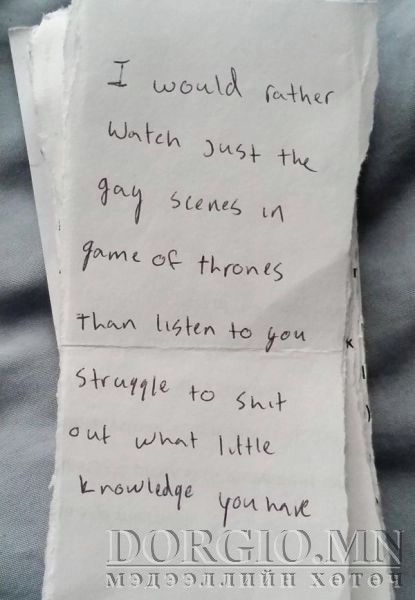 I would rather
watch just the
gay scenes in
game of thrones
than listen to you
struggle to shit
out what little
knowledge you have
DORGIO.MN
МЭДЭЭЛЛИЙН ХӨТӨЧ